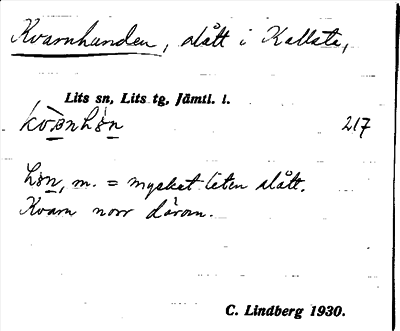 Kvarnhunden, slått i Kallsta,
Lits sn, Lits tg, Jämtl. l.
217
m. = mycket liten slått.
Kvarn norr därom.
C. Lindberg 1930.